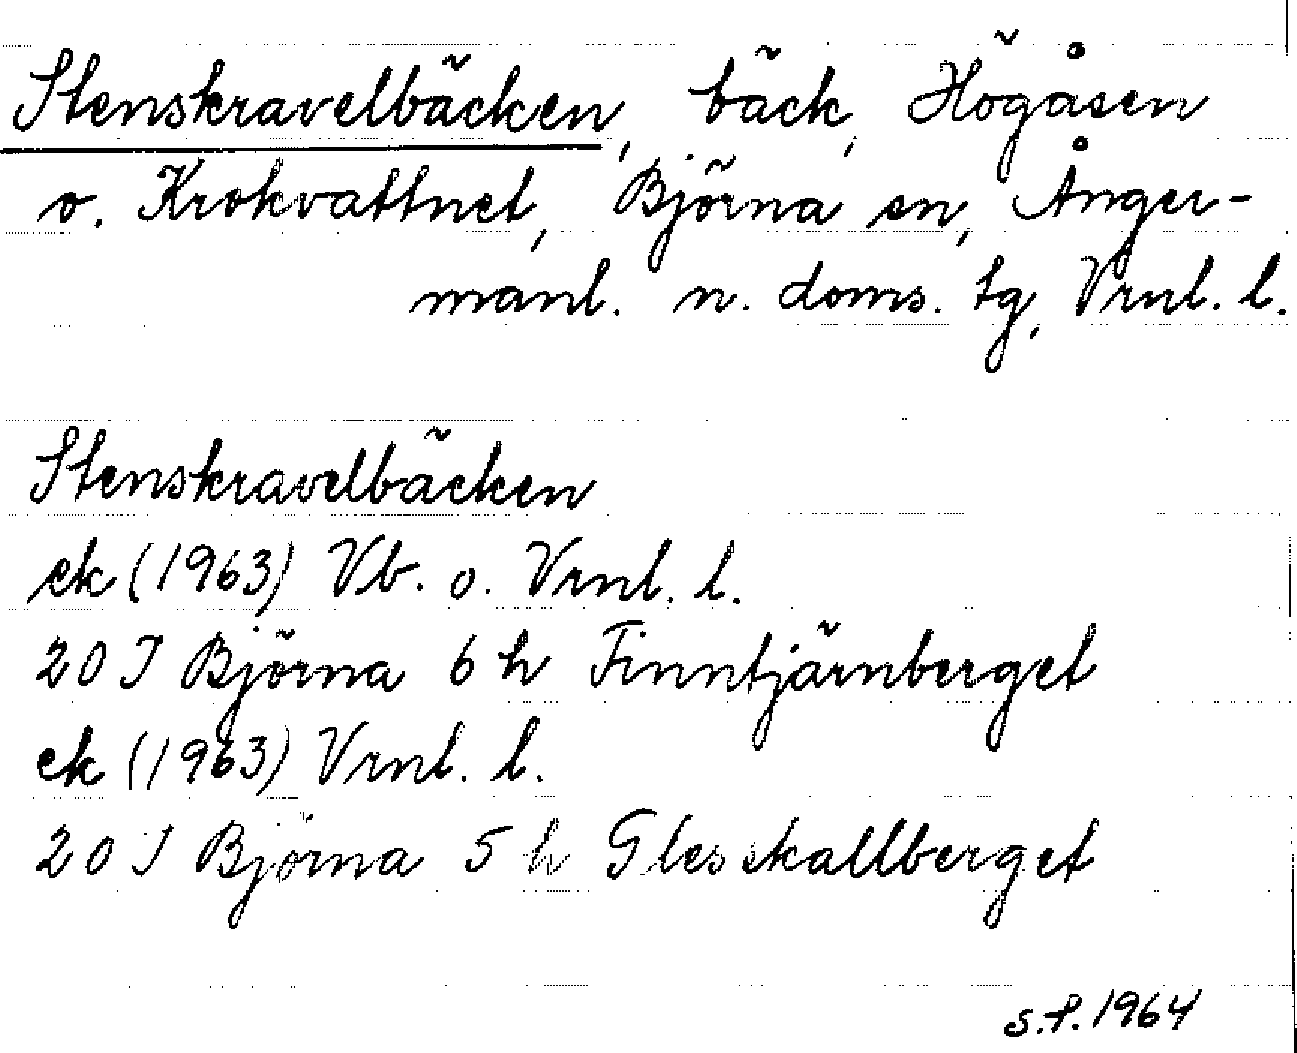 Stenskravelbäcken, bäck, Högåsen
o. Krokvattnet, Björna sn, Ånger-
manl. n. doms. tg, Vrnl. l.
Stenskravelbäcken
ek (1963) Vb. o. Vrnl. l.
20 I Björna 6 h Finntjärnberget
ek (1963) Vrnl. l.
20 I Björna 5 h Glesskallberget
s.f. 1964